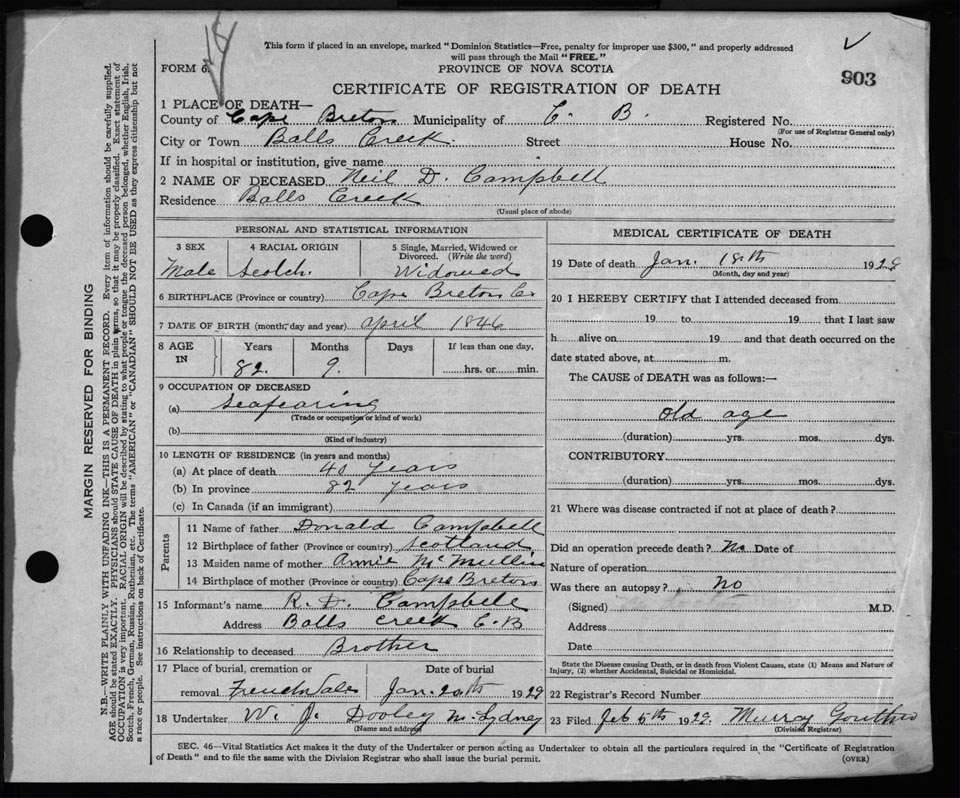 This form if placed in an envelope, marked "Dominion Statistics—Free, penalty for improper use $300," and properly addressed
will pass through the Mail "FREE."
FORM 6.
PROVINCE OF NOVA SCOTIA
903
CERTIFICATE OF REGISTRATION OF DEATH
1 PLACE OF DEATH—
County of Cape Breton Municipality of C. B. Registered No.
(For use of Registrar General only)
City or Town Balls Creek Street House No.
If in hospital or institution, give name
2 NAME OF DECEASED Neil D. Campbell
Residence Balls Creek
(Usual place of abode)
PERSONAL AND STATISTICAL INFORMATION
3 SEX 4 RACIAL ORIGIN 5 Single, Married, Widowed or Divorced. (Write the word)
Male Scotch. Widowed
6 BIRTHPLACE (Province or country) Cape Breton Co
7 DATE OF BIRTH (month, day and year) April 1846
8 AGE IN Years Months Days If less than one day,
82. 9. hrs. or min.
9 OCCUPATION OF DECEASED
(a) Seafearing
(Trade or occupation or kind of work)
(b)
(Kind of industry)
10 LENGTH OF RESIDENCE (in years and months)
(a) At place of death 40 years
(b) In province 82 years
(c) In Canada (if an immigrant)
Parents
11 Name of father Donald Campbell
12 Birthplace of father (Province or country) Scotland
13 Maiden name of mother Annie McMullin
14 Birthplace of mother (Province or country) Cape Breton
15 Informant's name R. D. Campbell
Address Balls Creek C.B
16 Relationship to deceased Brother
17 Place of burial, cremation or Date of burial
removal French Vale Jan. 20th 1929
18 Undertaker W. J. Dooley N. Sydney
(Name and address)
MEDICAL CERTIFICATE OF DEATH
19 Date of death Jan. 18th 1929
(Month, day and year)
20 I HEREBY CERTIFY that I attended deceased from
19 to 19 that I last saw
h alive on 19 and that death occurred on the
date stated above, at m.
The CAUSE of DEATH was as follows:—
Old age
(duration) yrs. mos. dys.
CONTRIBUTORY
(duration) yrs. mos. dys.
21 Where was disease contracted if not at place of death?
Did an operation precede death? No Date of
Nature of operation
Was there an autopsy? No
(Signed) M.D.
Address
Date
State the Disease causing Death, or in death from Violent Causes, state (1) Means and Nature of
Injury, (2) whether Accidental, Suicidal or Homicidal.
22 Registrar's Record Number
23 Filed Feb 5th 1929. Murray
(Division Registrar)
SEC. 46—Vital Statistics Act makes it the duty of the Undertaker or person acting as Undertaker to obtain all the particulars required in the "Certificate of Registration
of Death" and to file the same with the Division Registrar who shall issue the burial permit.
(OVER)
MARGIN RESERVED FOR BINDING
N.B.—WRITE PLAINLY WITH UNFADING INK—THIS IS A PERMANENT RECORD. Every item of information should be carefully supplied.
AGE should be stated EXACTLY. PHYSICIANS should STATE CAUSE OF DEATH in plain terms, so that it may be properly classified. Exact statement of
OCCUPATION is very important. RACIAL ORIGIN will be described by stating to what people or tongue the deceased person belonged, whether English, Irish,
Scotch, French, German, Russian, Ruthenian, etc. The terms "AMERICAN" or "CANADIAN" SHOULD NOT BE USED as they express citizenship but not
a race or people. See instructions on back of Certificate.